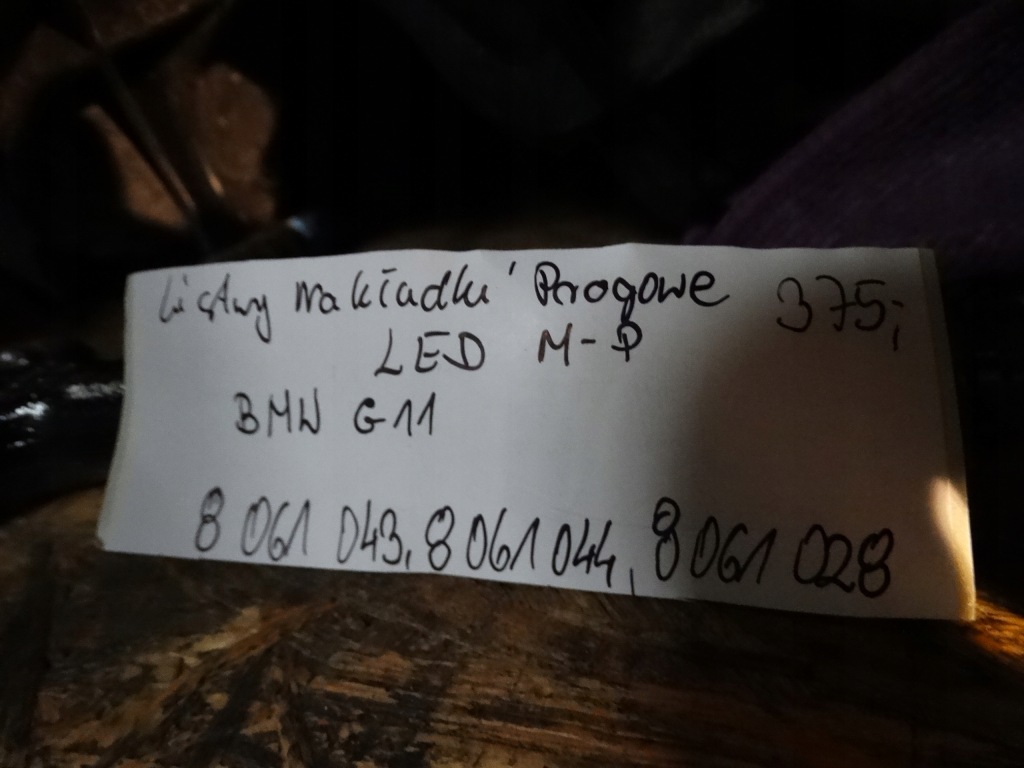 Listwy nakładki Progowe 375,-
LED M-P
BMW G11
8 061 043, 8 061 044, 8 061 028